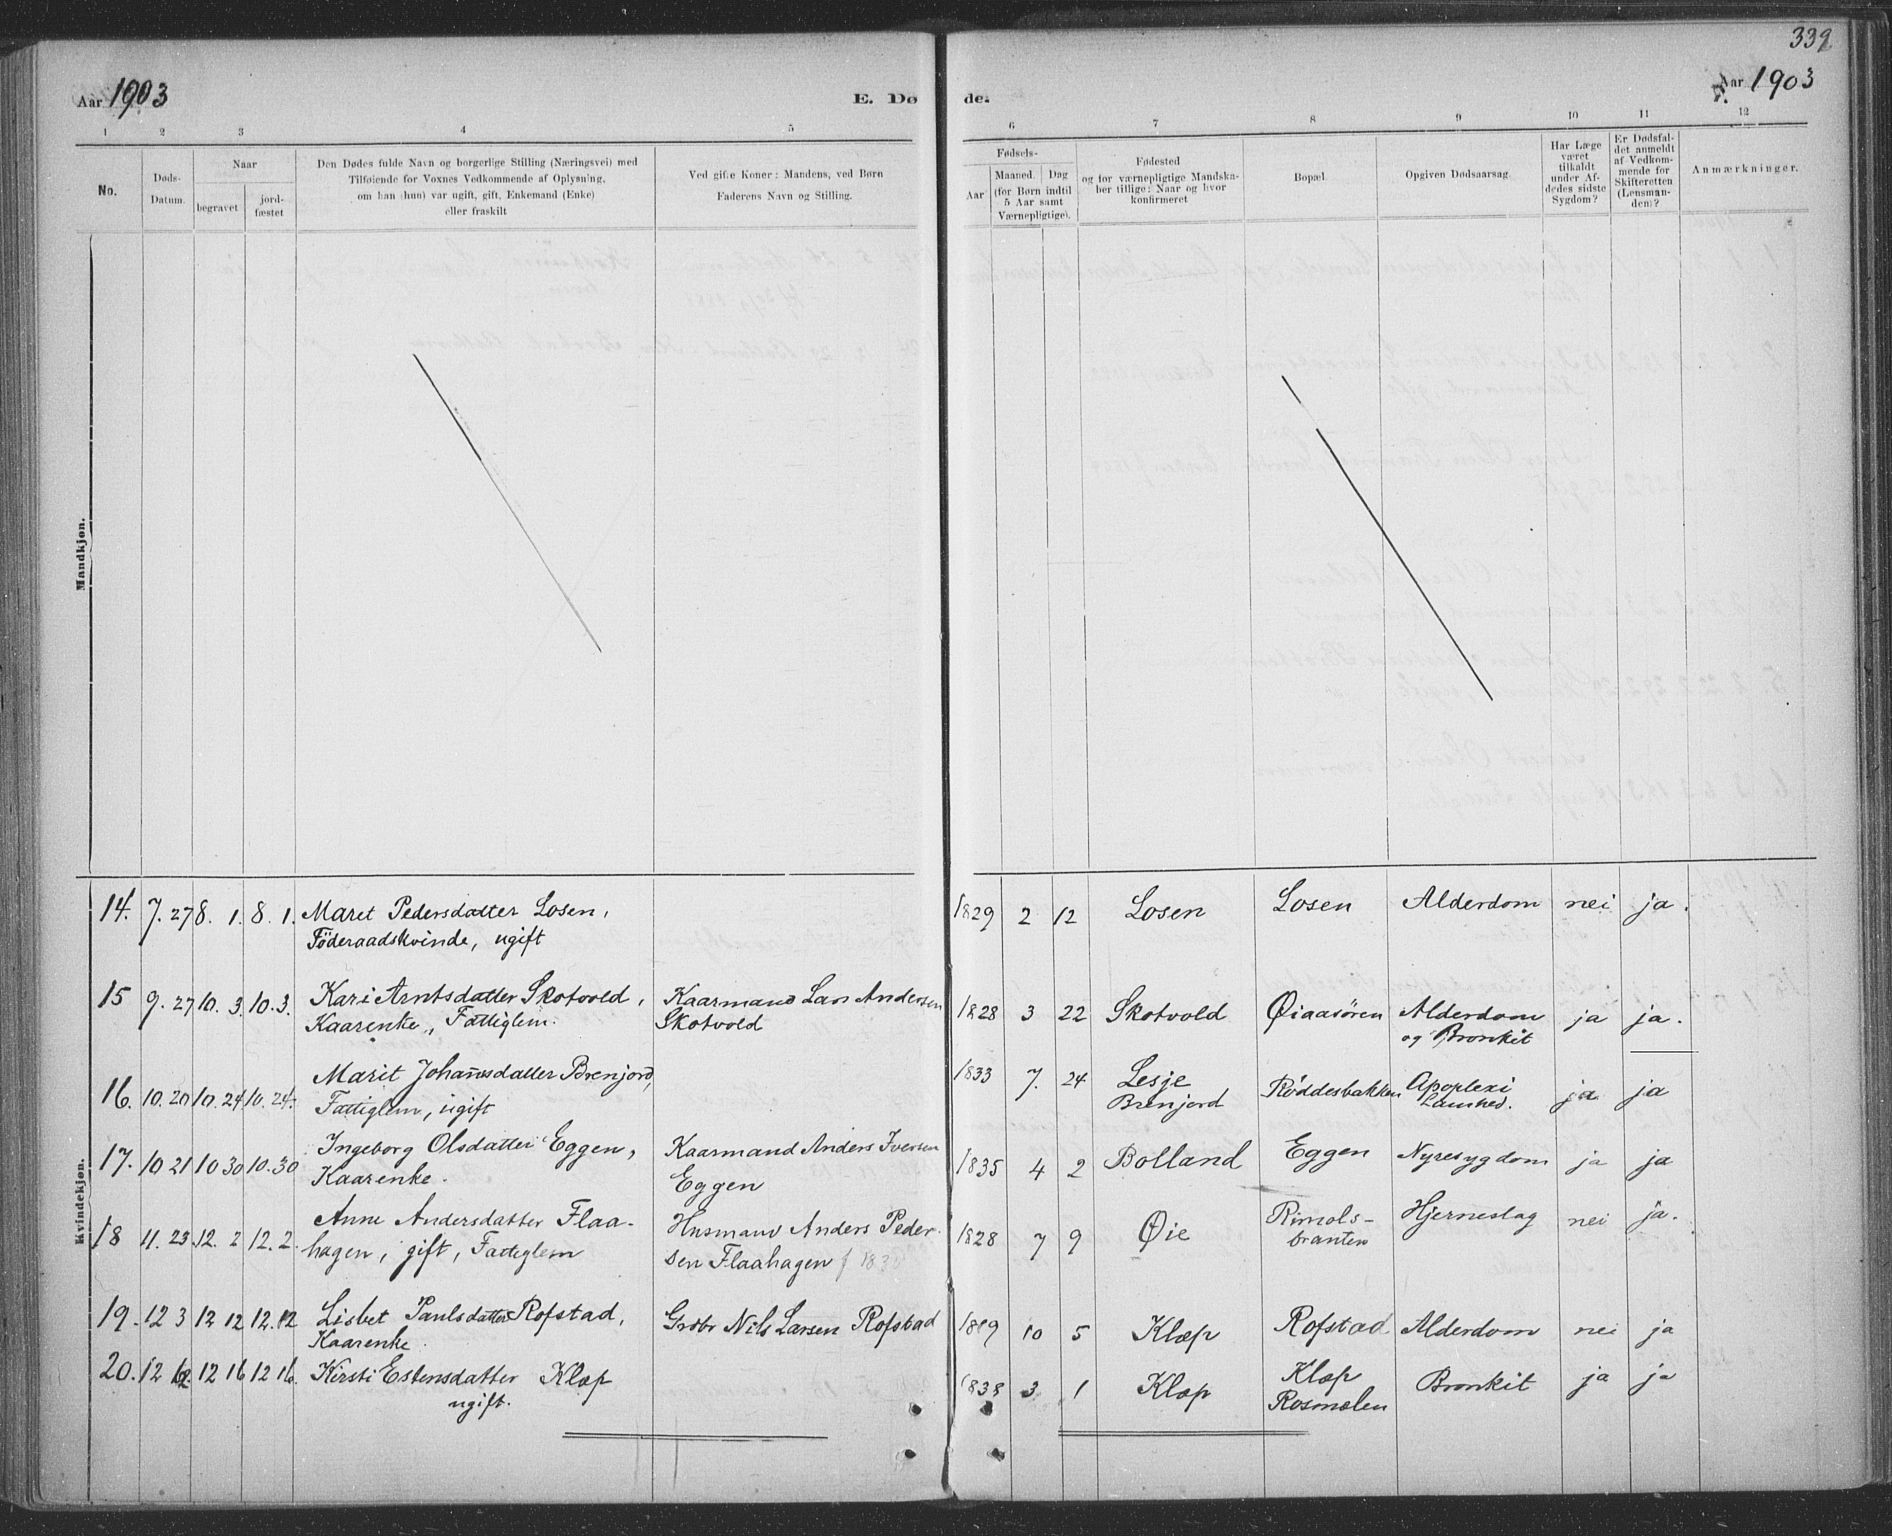 339
Aar 1903
E. Dø de.
Aar 1903
1 2 3 4 5 6 7 8 9 10 11 12
No.
Døds-
Datum.
Naar
begravet
jord-
fæstet
Den Dødes fulde Navn og borgerlige Stilling (Næringsvei) med
Tilføiende for Voxnes Vedkommende af Oplysning,
om han (hun) var ugift, gift, Enkemand (Enke)
eller fraskilt
Ved gifte Koner: Mandens, ved Børn
Faderens Navn og Stilling.
Fødsels-
Aar
Maaned. Dag
(for Børn indtil
5 Aar samt
Værnepligtige).
Fødested
og for værnepligtige Mandska-
ber tillige: Naar og hvor
konfirmeret
Bopæl.
Opgiven Dødsaarsag.
Har Læge
været
tilkaldt
under Af-
dødes sidste
Sygdom?
Er Dødsfal-
det anmeldt
af Vedkom-
mende for
Skifteretten
(Lensman-
den)?
Anmærkninger.
Mandkjøn.
Kvindekjøn.
14. 7. 27 8. 1. 8. 1. Maret Pedersdatter Losen, 1829 2 12 Losen Losen Alderdom nei ja.
Föderaadskvinde, ugift
15 9. 27 10. 3. 10. 3. Kari Arntsdatter Skotvold, Kaarmand Lars Andersen 1828 3 22 Skotvold Øiaasören Alderdom ja ja.
Kaarenke, Fattiglem. Skotvold og Bronkit
16. 10. 20 10. 24 10. 24. Marit Johannsdatter Brenjord, 1833 7. 24 Lesje Røddesbakken Apoplexi ja ja
Fattiglem, ugift Brenjord Lamhed.
17. 10 21 10 30 10. 30 Ingeborg Olsdatter Eggen, Kaarmand Anders Iversen 1835 4 2 Bolland Eggen Nyresygdom ja ja
Kaarenke. Eggen
18 11. 23 12. 2 12. 2. Anne Andersdatter Flaa- Husmand Anders Peder- 1828 7 9 Øie Rimols- Hjerneslag nei ja.
hagen, gift, Fattiglem sen Flaahagen branten
19. 12 3 12 12 12. 12 Lisbet Paulsdatter Rofstad, Grdbr Nils Larsen Rofstad 1819 10 5 Klæp Rofstad Alderdom nei ja
Kaarenke.
20. 12 12 12 16 12 16. Kirsti Estensdatter Klæp 1838 3 1 Klæp Klæp Bronkit ja ja
ugift. Rosmælen